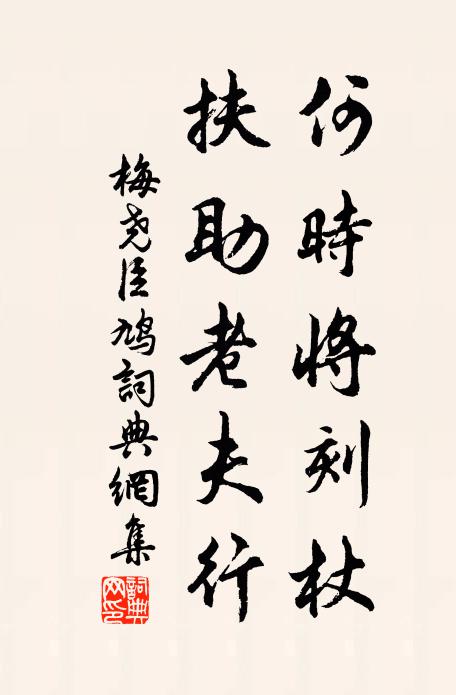 何時將刻杖
扶助老夫行
梅尧臣鳩詞典網集
詞典网印